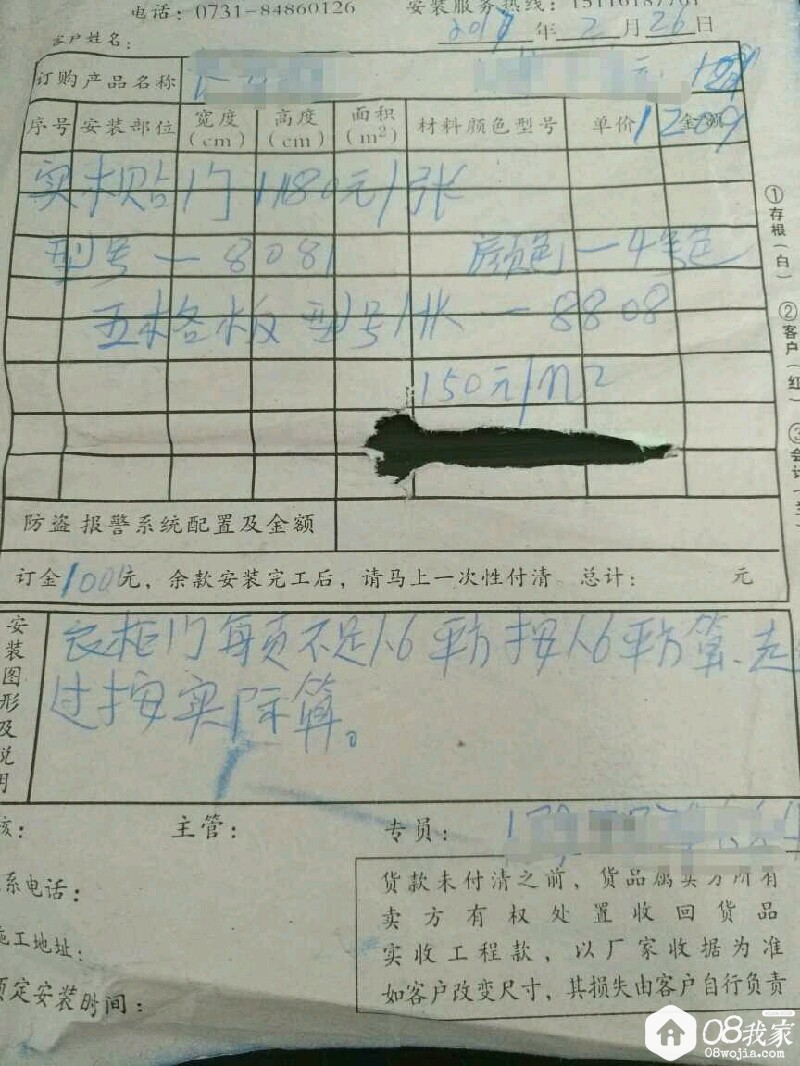 电话：0731-84860126 安装服务热线：
客户姓名： 2017年2月26日
订购产品名称 元
序号 安装部位 宽度（cm） 高度（cm） 面积（m²） 材料颜色型号 单价 金额
1209
实木贴门 1180元/张
型号-8081 颜色-4号色
五木格板 型号HK-8808
150元/m2
防盗报警系统配置及金额
订金100元，余款安装完工后，请马上一次性付清 总计： 元
安装图形及说明
衣柜门每页不足1.6平方按1.6平方算、超
过按实际算。
核： 主管： 专员：
系电话：
施工地址：
预定安装时间：
货款未付清之前，货品属卖方所有
卖方有权处置收回货品
实收工程款，以厂家收据为准
如客户改变尺寸，其损失由客户自行负责
①存根（白）
②客户（红）
③会计
08我家
08wojia.com